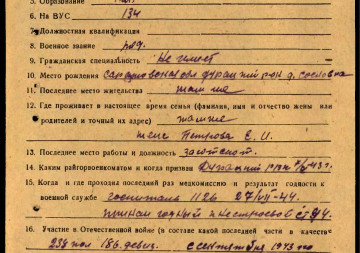 5. Образование
6. На ВУС 134
7. Должностная квалификация
8. Военное звание ряд.
9. Гражданская специальность Не имеет
10. Место рождения р-он д. Сосновка
11. Последнее место жительства там же
12. Где проживает в настоящее время семья (фамилия, имя и отчество жены или
родителей и точный их адрес) там же
жена Петрова Е. И.
13. Последнее место работы и должность
14. Каким райгорвоенкоматом и когда призван 43 г.
15. Когда и где проходил последний раз медкомиссию и результат годности к
военной службе госпиталь 1126 27/VII-44.
годный к нестроевой ст
16. Участие в Отечественной войне (в составе какой последней части и в качестве
238 пол 186 дивиз. с сентября 1943 по